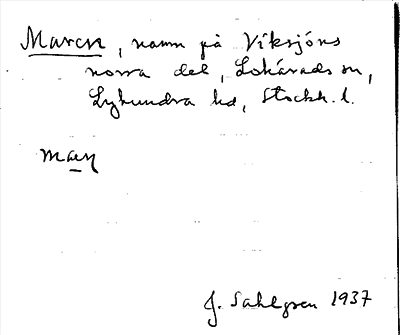 Maren, namn på Viksjöns
norra del, Lohärads sn,
Lyhundra hd, Stockh. l.
maṛn
J. Sahlgren 1937